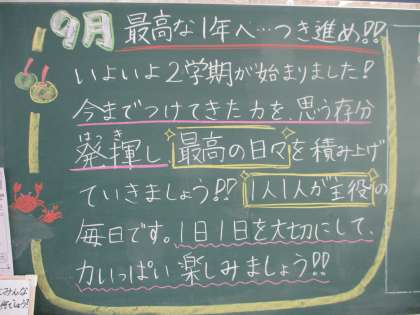 9月 最高な1年へ…つき進め!!
いよいよ2学期が始まりました!
今までつけてきた力を、思う存分
はっき
発揮し、最高の日々を積み上げ
ていきましょう!! 1人1人が主役の
毎日です。1日1日を大切にして、
力いっぱい楽しみましょう!!
みんな